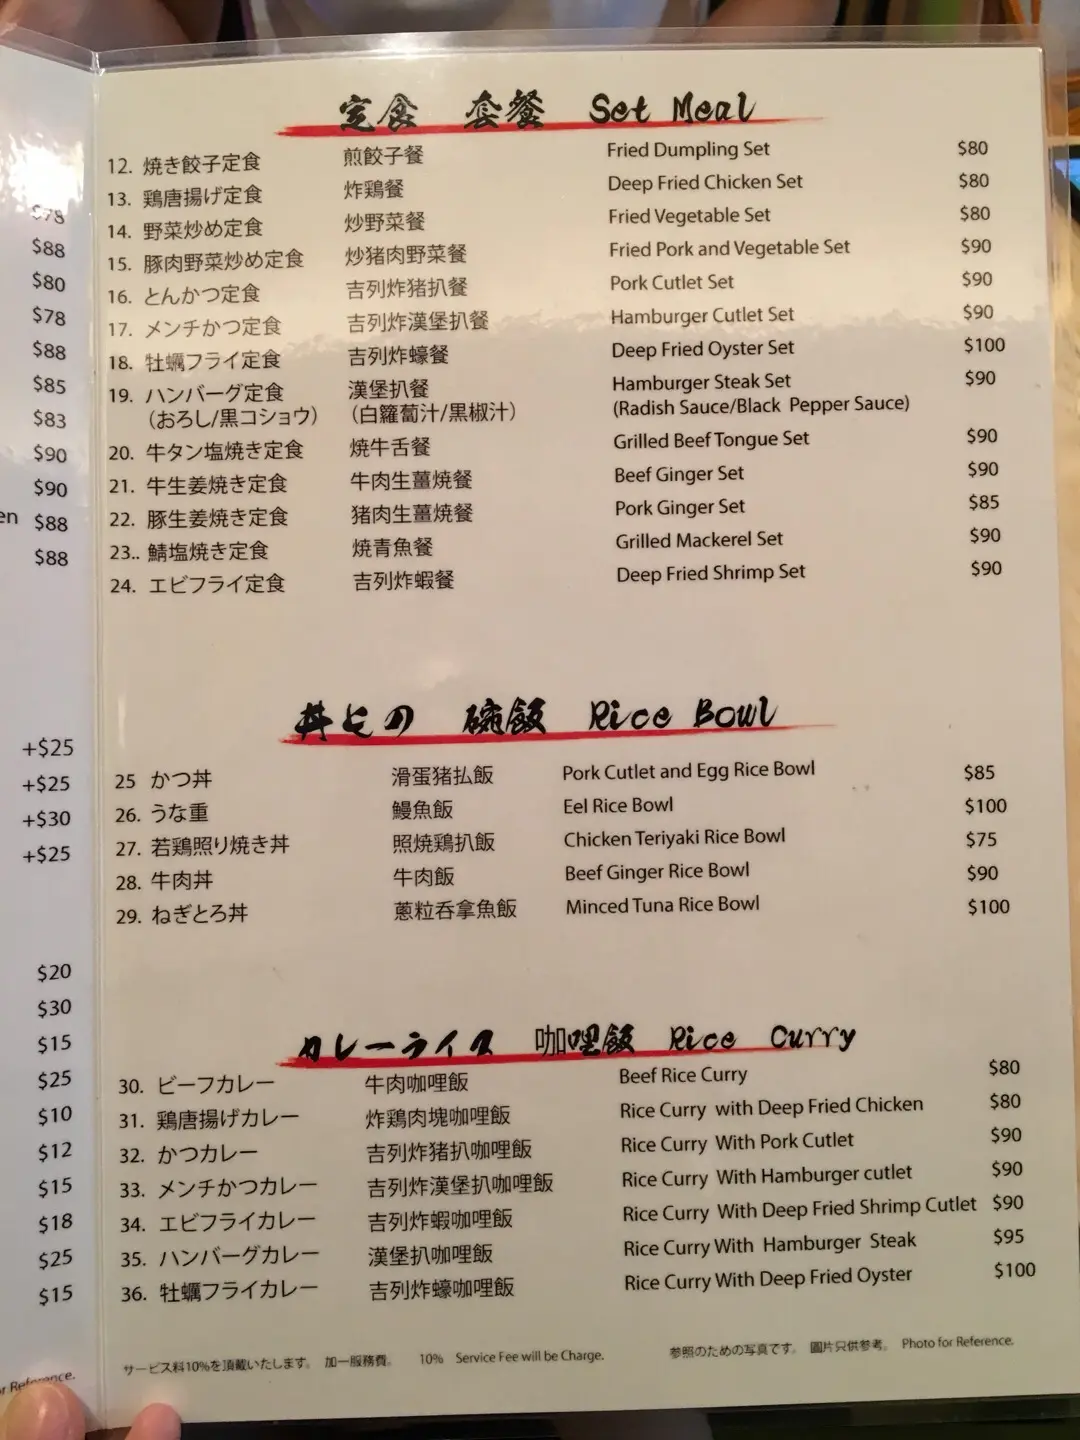 $78
$88
$80
$78
$88
$85
$83
$90
$90
en $88
$88
+$25
+$25
+$30
+$25
$20
$30
$15
$25
$10
$12
$15
$18
$25
$15
or Reference.
定食 套餐 Set Meal
12. 焼き餃子定食 煎餃子餐 Fried Dumpling Set $80
13. 鶏唐揚げ定食 炸鶏餐 Deep Fried Chicken Set $80
14. 野菜炒め定食 炒野菜餐 Fried Vegetable Set $80
15. 豚肉野菜炒め定食 炒猪肉野菜餐 Fried Pork and Vegetable Set $90
16. とんかつ定食 吉列炸猪扒餐 Pork Cutlet Set $90
17. メンチかつ定食 吉列炸漢堡扒餐 Hamburger Cutlet Set $90
18. 牡蠣フライ定食 吉列炸蠔餐 Deep Fried Oyster Set $100
19. ハンバーグ定食 漢堡扒餐 Hamburger Steak Set $90
（おろし/黒コショウ） （白蘿蔔汁/黒椒汁） (Radish Sauce/Black Pepper Sauce)
20. 牛タン塩焼き定食 焼牛舌餐 Grilled Beef Tongue Set $90
21. 牛生姜焼き定食 牛肉生薑焼餐 Beef Ginger Set $90
22. 豚生姜焼き定食 猪肉生薑焼餐 Pork Ginger Set $85
23.. 鯖塩焼き定食 焼青魚餐 Grilled Mackerel Set $90
24. エビフライ定食 吉列炸蝦餐 Deep Fried Shrimp Set $90
丼もの 碗飯 Rice Bowl
25 かつ丼 滑蛋猪払飯 Pork Cutlet and Egg Rice Bowl $85
26. うな重 鰻魚飯 Eel Rice Bowl $100
27. 若鶏照り焼き丼 照焼鶏扒飯 Chicken Teriyaki Rice Bowl $75
28. 牛肉丼 牛肉飯 Beef Ginger Rice Bowl $90
29. ねぎとろ丼 蔥粒呑拿魚飯 Minced Tuna Rice Bowl $100
カレーライス 咖哩飯 Rice Curry
30. ビーフカレー 牛肉咖哩飯 Beef Rice Curry $80
31. 鶏唐揚げカレー 炸鶏肉塊咖哩飯 Rice Curry with Deep Fried Chicken $80
32. かつカレー 吉列炸猪扒咖哩飯 Rice Curry With Pork Cutlet $90
33. メンチかつカレー 吉列炸漢堡扒咖哩飯 Rice Curry With Hamburger cutlet $90
34. エビフライカレー 吉列炸蝦咖哩飯 Rice Curry With Deep Fried Shrimp Cutlet $90
35. ハンバーグカレー 漢堡扒咖哩飯 Rice Curry With Hamburger Steak $95
36. 牡蠣フライカレー 吉列炸蠔咖哩飯 Rice Curry With Deep Fried Oyster $100
サービス料10%を頂戴いたします。 加一服務費。 10% Service Fee will be Charge. 参照のための写真です。 圖片只供參考。 Photo for Reference.